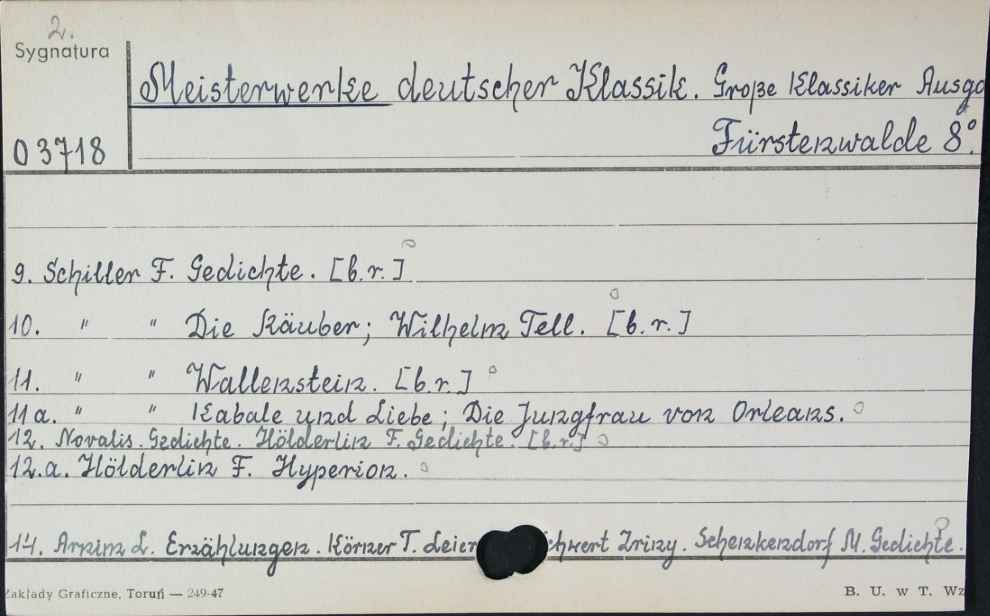 2.
Sygnatura
Meisterwerke deutscher Klassik. Große Klassiker Ausga
03718
Fürstenwalde 8°.
9. Schiller F. Gedichte. [b.r.]
10. " " Die Räuber; Wilhelm Tell. [b.r.]
11. " " Wallenstein. [b.r.]
11a. " " Kabale und Liebe; Die Jungfrau von Orleans.
12. Novalis. Gedichte. Hölderlin F. Gedichte. [b.r.]
12.a. Hölderlin F. Hyperion.
14. Arnim L. Erzählungen. Körner T. Leier chwert Zriny. Schenkendorf M. Gedichte.
Zakłady Graficzne, Toruń — 249-47
B. U. w T. Wz